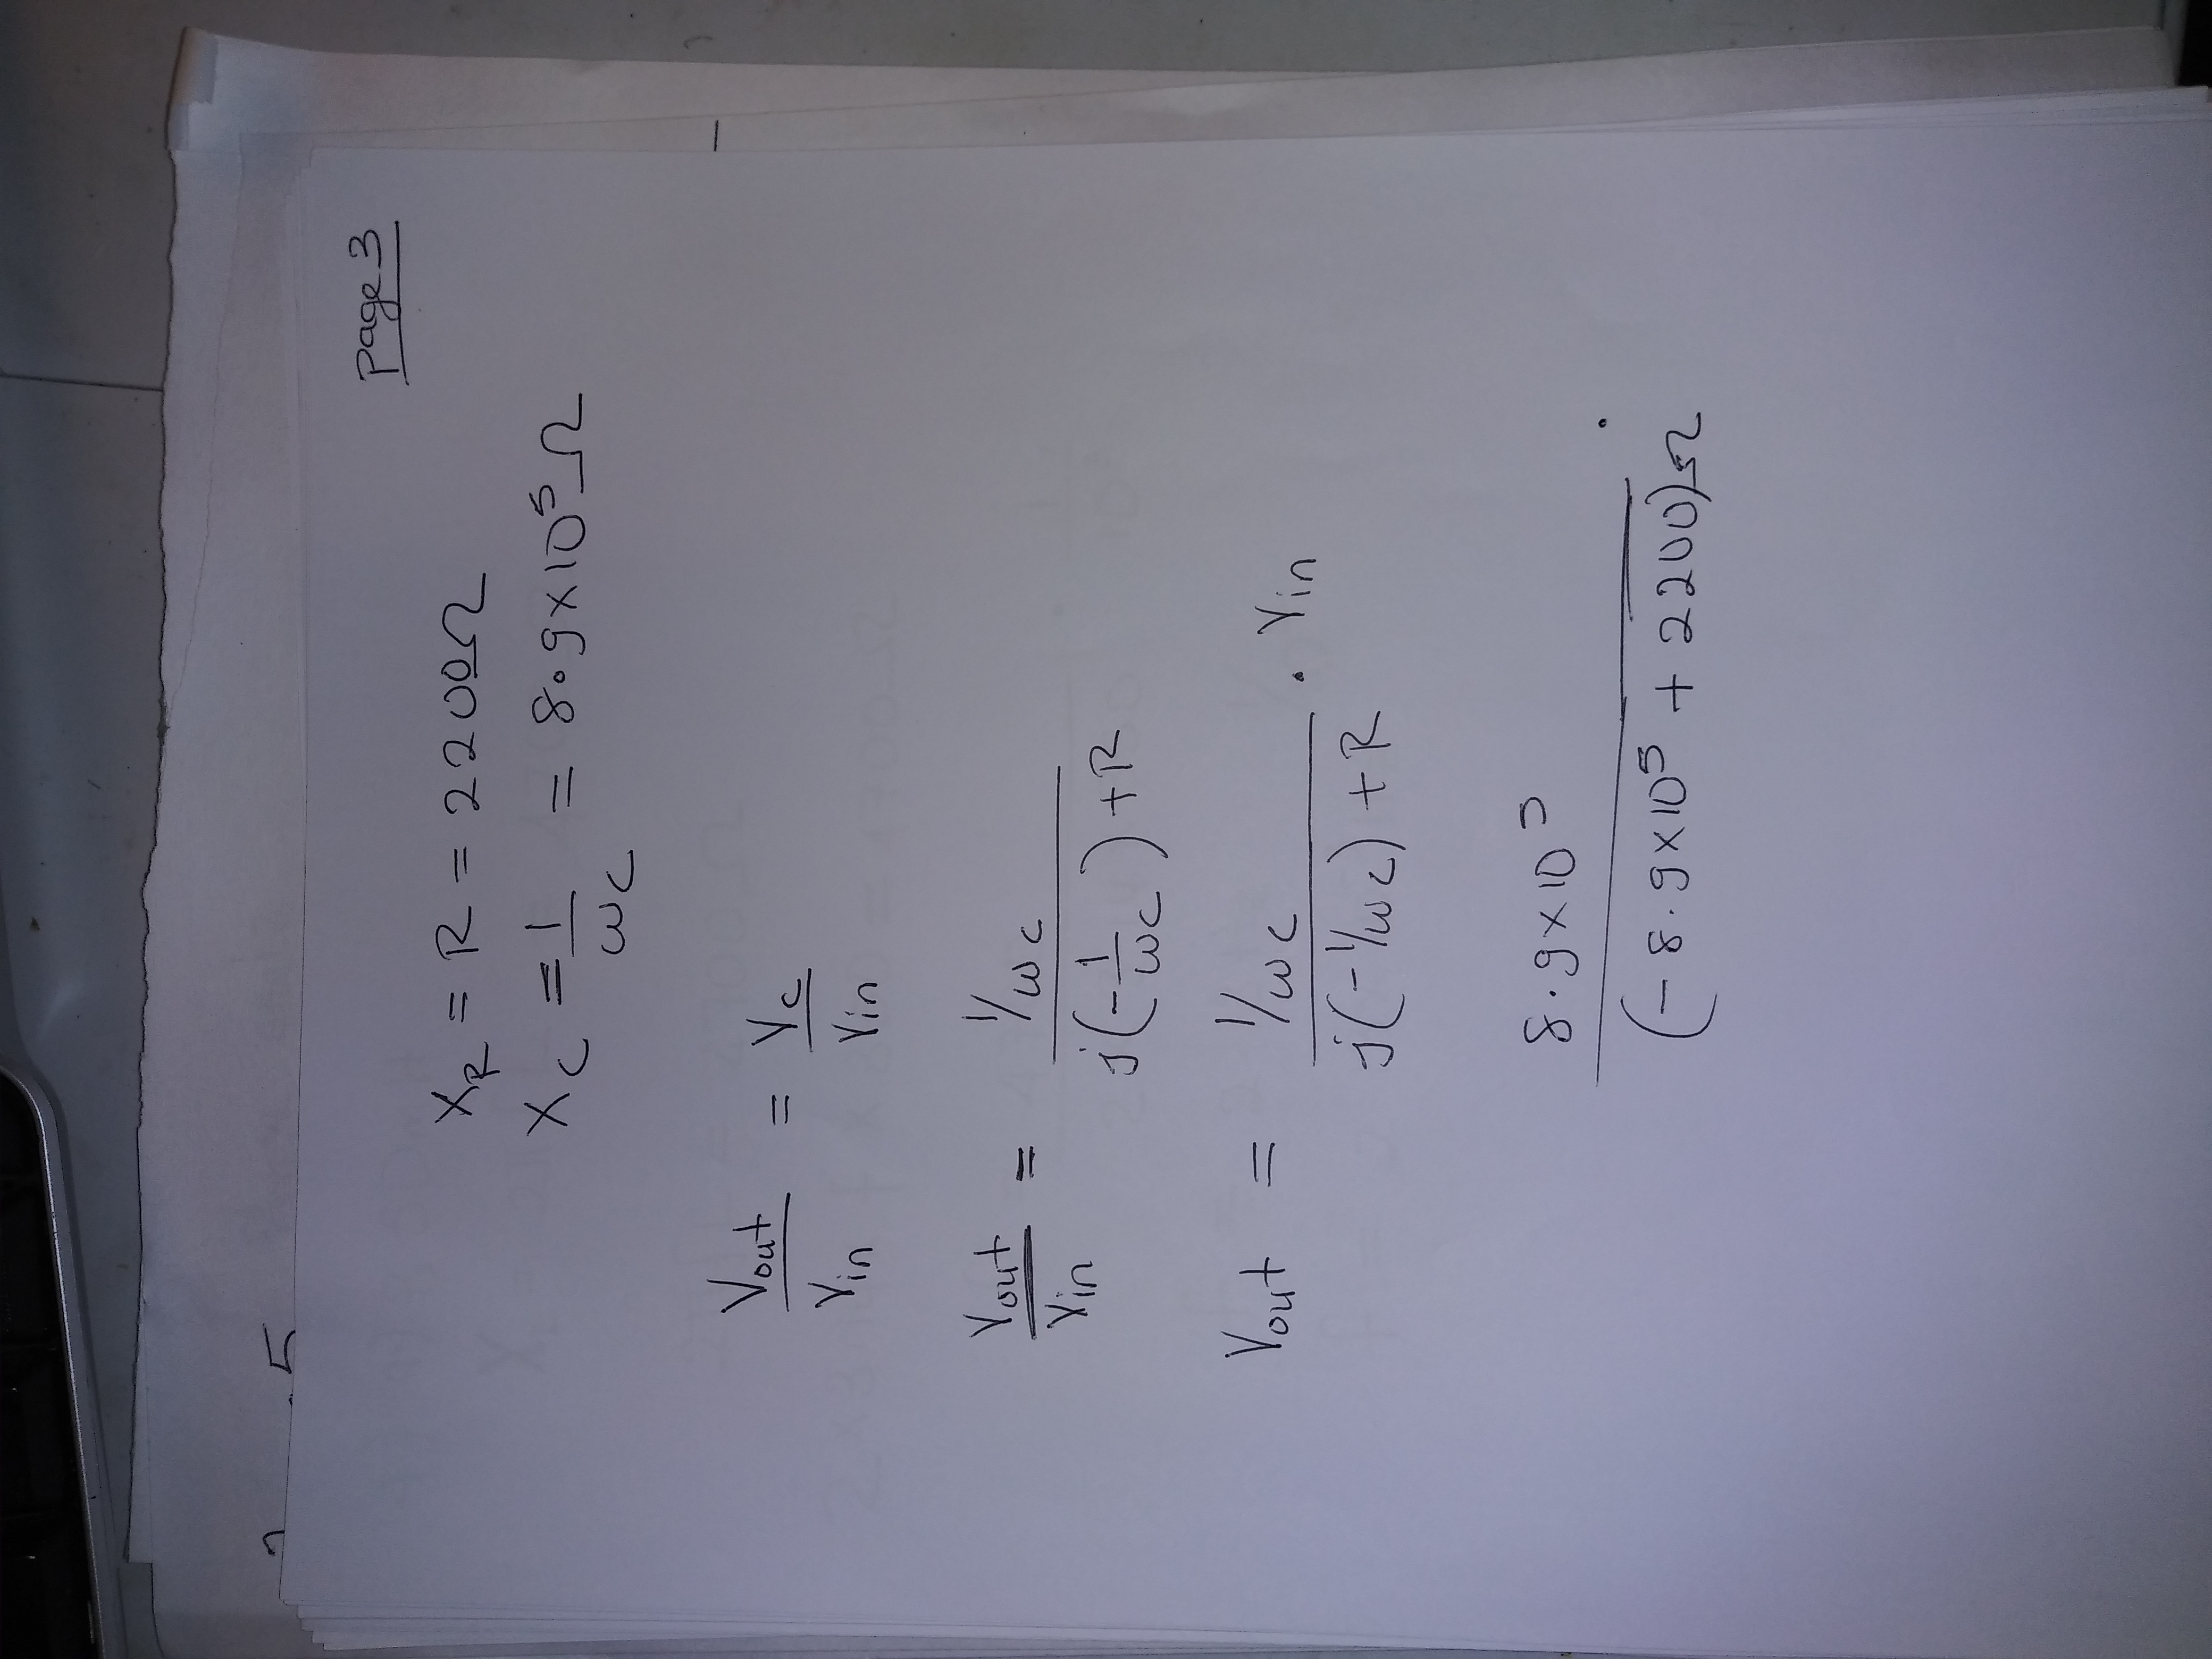 5
page 3
X_R = R = 2200Ω
X_C = 1/ωC = 8.9×10^5 Ω
Vout/Vin = Vc/Vin
Vout/Vin = (1/ωC)/(j(-1/ωC)+R)
Vout = (1/ωC)/(j(-1/ωC)+R) . Vin
8.9×10^5/(-8.9×10^5 + 2200)Ω .